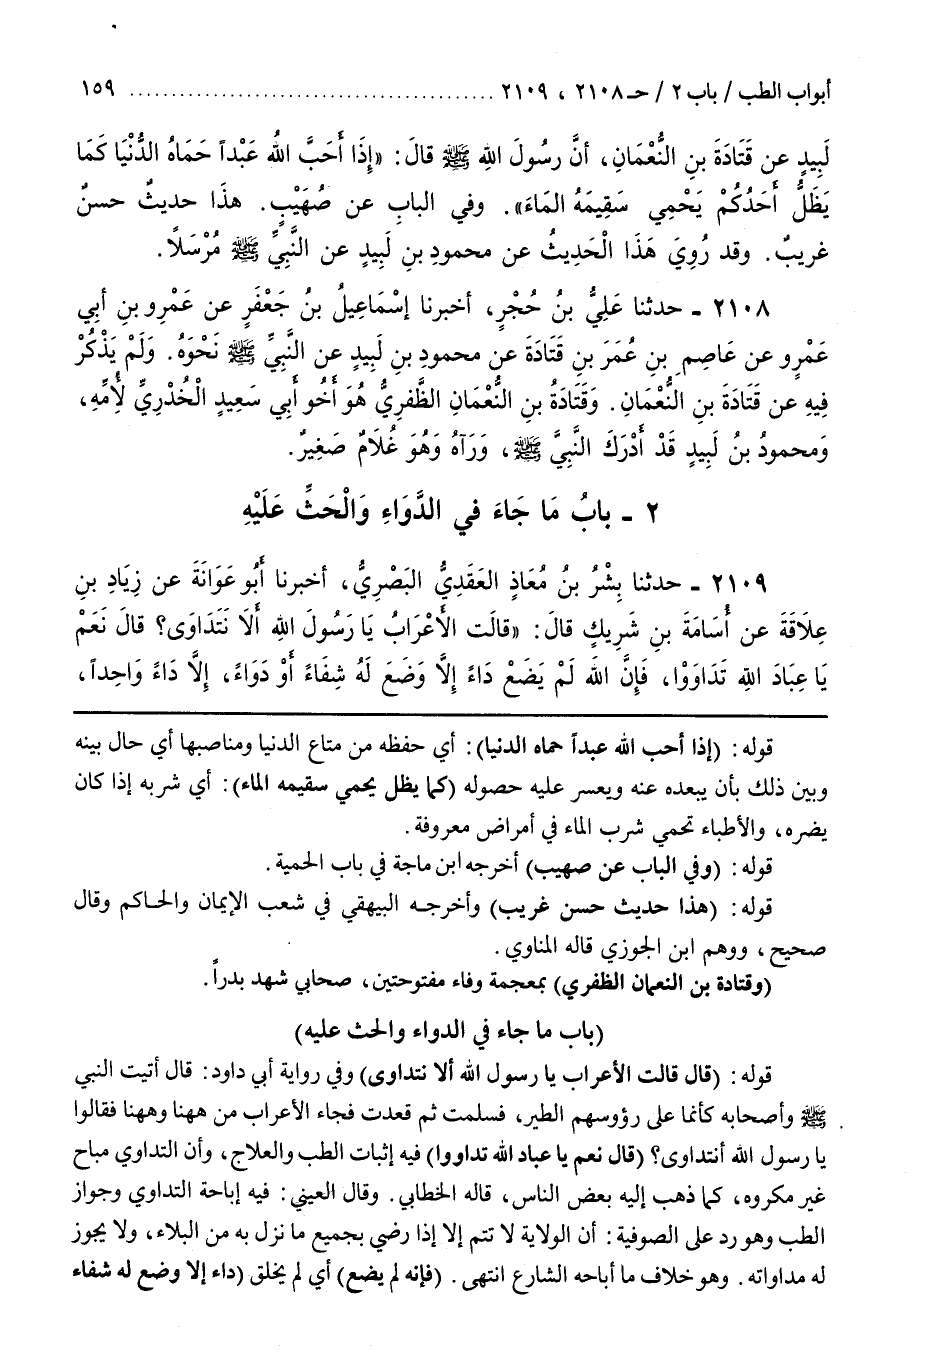 أبواب الطب / باب ٢ / حـ ٢١٠٨ ، ٢١٠٩ ........................................ ١٥٩
لَبِيدٍ عن قَتَادَةَ بنِ النُّعْمَانِ، أنَّ رسُولَ اللهِ ﷺ قالَ: «إذَا أَحَبَّ اللهُ عَبْداً حَمَاهُ الدُّنْيَا كَمَا
يَظَلُّ أَحَدُكُمْ يَحْمِي سَقِيمَهُ المَاءَ». وفي البابِ عن صُهَيْبٍ. هذَا حديثٌ حسنٌ
غريبٌ. وقد رُوِيَ هَذَا الْحَدِيثُ عن محمودِ بنِ لَبِيدٍ عن النَّبِيِّ ﷺ مُرْسَلاً.
٢١٠٨ ـ حدثنا عَلِيُّ بنُ حُجْرٍ، أخبرنا إسْمَاعِيلُ بنُ جَعْفَرٍ عن عَمْرِو بنِ أبي
عَمْرٍو عن عَاصِمِ بنِ عُمَرَ بنِ قَتَادَةَ عن محمودِ بنِ لَبِيدٍ عن النَّبِيِّ ﷺ نَحْوَهُ. وَلَمْ يَذْكُرْ
فِيهِ عن قَتَادَةَ بنِ النُّعْمَانِ. وَقَتَادَةُ بن النُّعْمَانِ الظَّفرِيُّ هُوَ أَخُو أَبي سَعِيدٍ الْخُدْرِيِّ لأُمِّهِ،
وَمحمودُ بنُ لَبِيدٍ قَدْ أَدْرَكَ النَّبِيَّ ﷺ، وَرَآهُ وَهُوَ غُلَامٌ صَغِيرٌ.
٢ ـ بابُ مَا جَاءَ في الدَّوَاءِ وَالْحَثِّ عَلَيْهِ
٢١٠٩ ـ حدثنا بِشْرُ بنُ مُعَاذٍ العَقَدِيُّ البَصْرِيُّ، أخبرنا أَبُو عَوَانَةَ عن زِيَادِ بنِ
عِلَاقَةَ عن أُسَامَةَ بنِ شَرِيكٍ قالَ: «قالَت الأَعْرَابُ يَا رَسُولَ اللهِ أَلَا نَتَدَاوَى؟ قالَ نَعَمْ
يَا عِبَادَ اللهِ تَدَاوَوْا، فَإِنَّ اللهَ لَمْ يَضَعْ دَاءً إلَّا وَضَعَ لَهُ شِفَاءً أَوْ دَوَاءً، إلَّا دَاءً وَاحِداً،
قوله: (إذا أحب الله عبداً حماه الدنيا): أي حفظه من متاع الدنيا ومناصبها أي حال بينه
وبين ذلك بأن يبعده عنه ويعسر عليه حصوله (كما يظل يحمي سقيمه الماء): أي شربه إذا كان
يضره، والأطباء تحمي شرب الماء في أمراض معروفة.
قوله: (وفي الباب عن صهيب) أخرجه ابن ماجة في باب الحمية.
قوله: (هذا حديث حسن غريب) وأخرجه البيهقي في شعب الإيمان والحاكم وقال
صحيح، ووهم ابن الجوزي قاله المناوي.
(وقتادة بن النعمان الظفري) بمعجمة وفاء مفتوحتين، صحابي شهد بدراً.
(باب ما جاء في الدواء والحث عليه)
قوله: (قال قالت الأعراب يا رسول الله ألا نتداوى) وفي رواية أبي داود: قال أتيت النبي
ﷺ وأصحابه كأنما على رؤوسهم الطير، فسلمت ثم قعدت فجاء الأعراب من ههنا وههنا فقالوا
يا رسول الله أنتداوى؟ (قال نعم يا عباد الله تداووا) فيه إثبات الطب والعلاج، وأن التداوي مباح
غير مكروه، كما ذهب إليه بعض الناس، قاله الخطابي. وقال العيني: فيه إباحة التداوي وجواز
الطب وهو رد على الصوفية: أن الولاية لا تتم إلا إذا رضي بجميع ما نزل به من البلاء، ولا يجوز
له مداواته. وهو خلاف ما أباحه الشارع انتهى. (فإنه لم يضع) أي لم يخلق (داء إلا وضع له شفاء